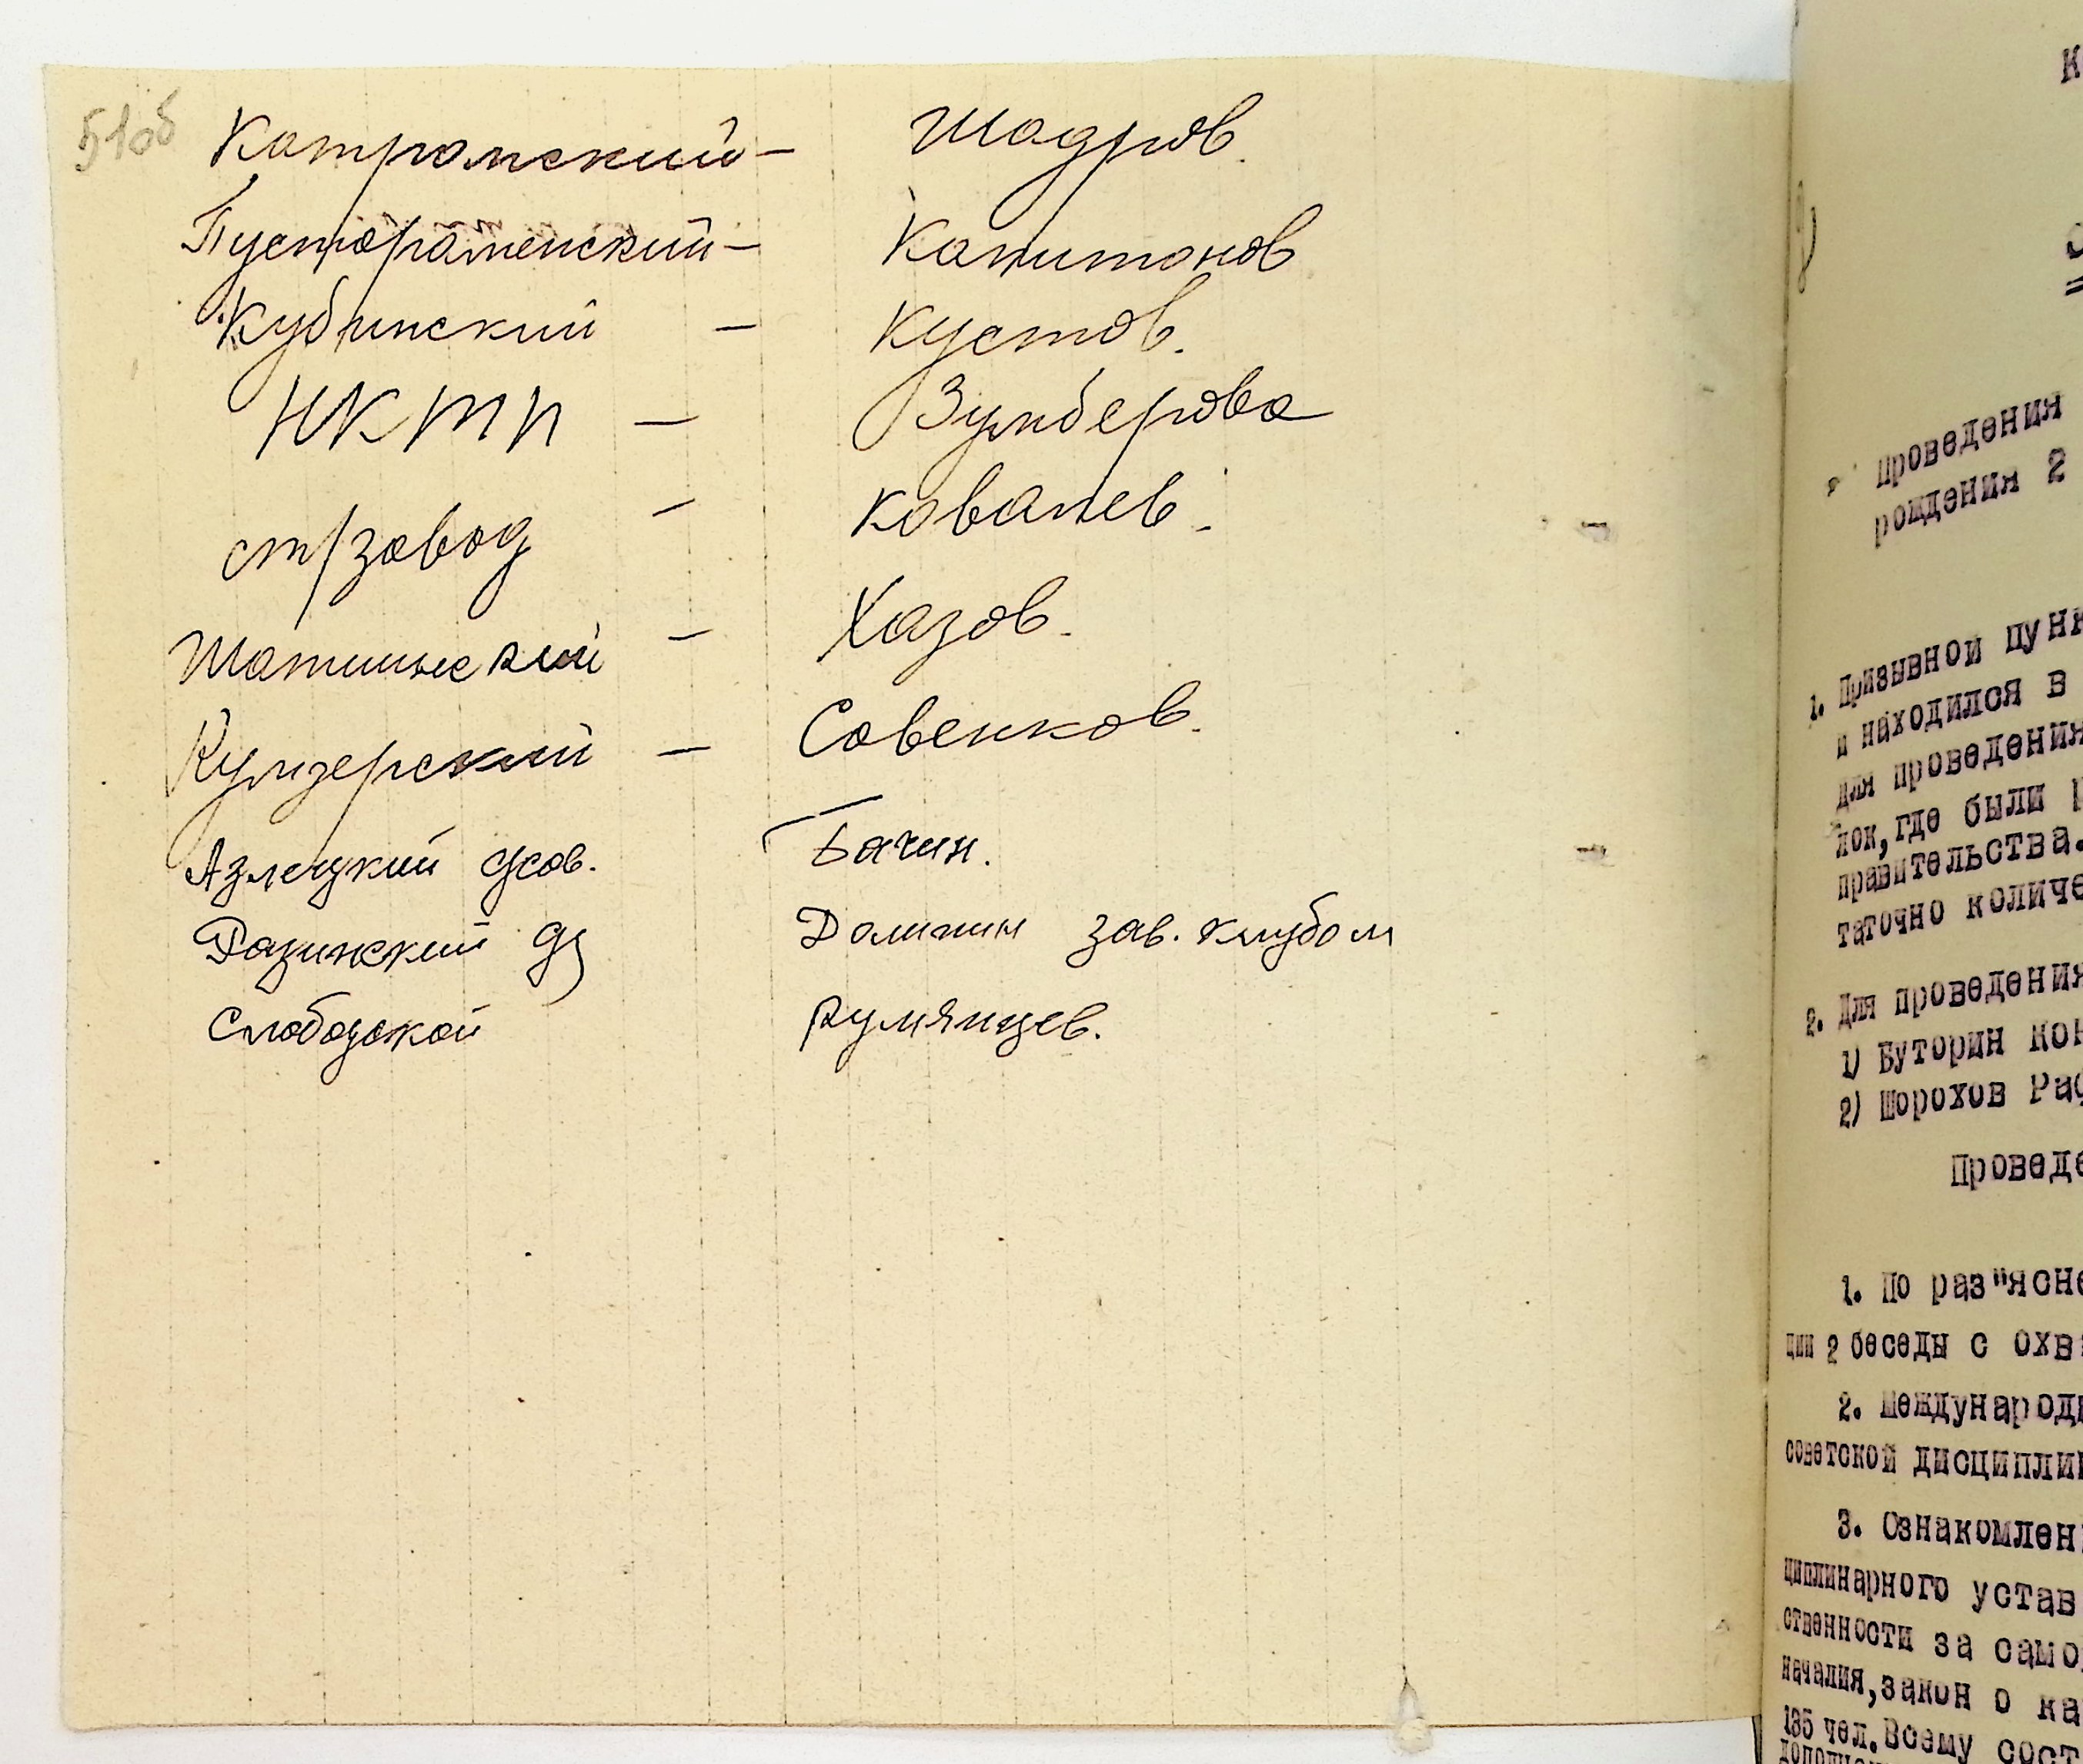 51об
Катромский - Шадров.
Пустораменский - Капитонов
Кубинский - Кустов.
НКТП - Зумберова
ст/завод - Ковалев.
Шапшинский - Хазов.
Кумзерский - Совенков.
Азлецкий дсов. Бачин.
Разинский д/ Долинин зав. клубом
Слободской Румянцев.
К
проведения
рождения 2
1. Призывной пунк
и находился в
для проведения
лок, где были
правительства.
таточно количе
2. Для проведения
1) Буторин кон
2) Шорохов Раф
Проведе
1. По раз"ясне
ции 2 беседы с охв
2. Международ
советской дисциплин
3. Ознакомлен
циплинарного устав
ственности за само
началия, закон о ка
135 чел. Всему сост